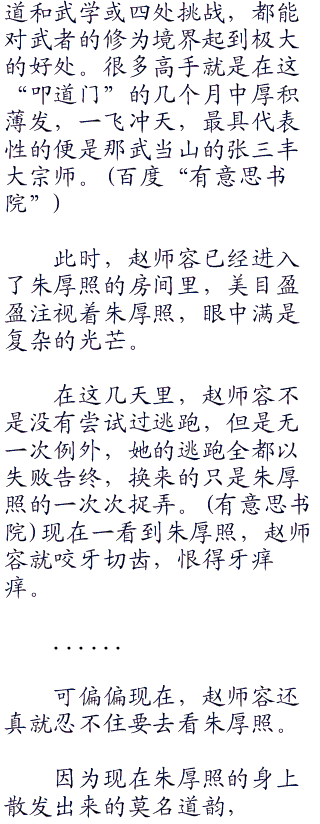 道和武学或四处挑战，都能
对武者的修为境界起到极大
的好处。很多高手就是在这
“叩道门”的几个月中厚积
薄发，一飞冲天，最具代表
性的便是那武当山的张三丰
大宗师。(百度“有意思书
院”)
此时，赵师容已经进入
了朱厚照的房间里，美目盈
盈注视着朱厚照，眼中满是
复杂的光芒。
在这几天里，赵师容不
是没有尝试过逃跑，但是无
一次例外，她的逃跑全都以
失败告终，换来的只是朱厚
照的一次次捉弄。(有意思书
院)现在一看到朱厚照，赵师
容就咬牙切齿，恨得牙痒
痒。
......
可偏偏现在，赵师容还
真就忍不住要去看朱厚照。
因为现在朱厚照的身上
散发出来的莫名道韵，